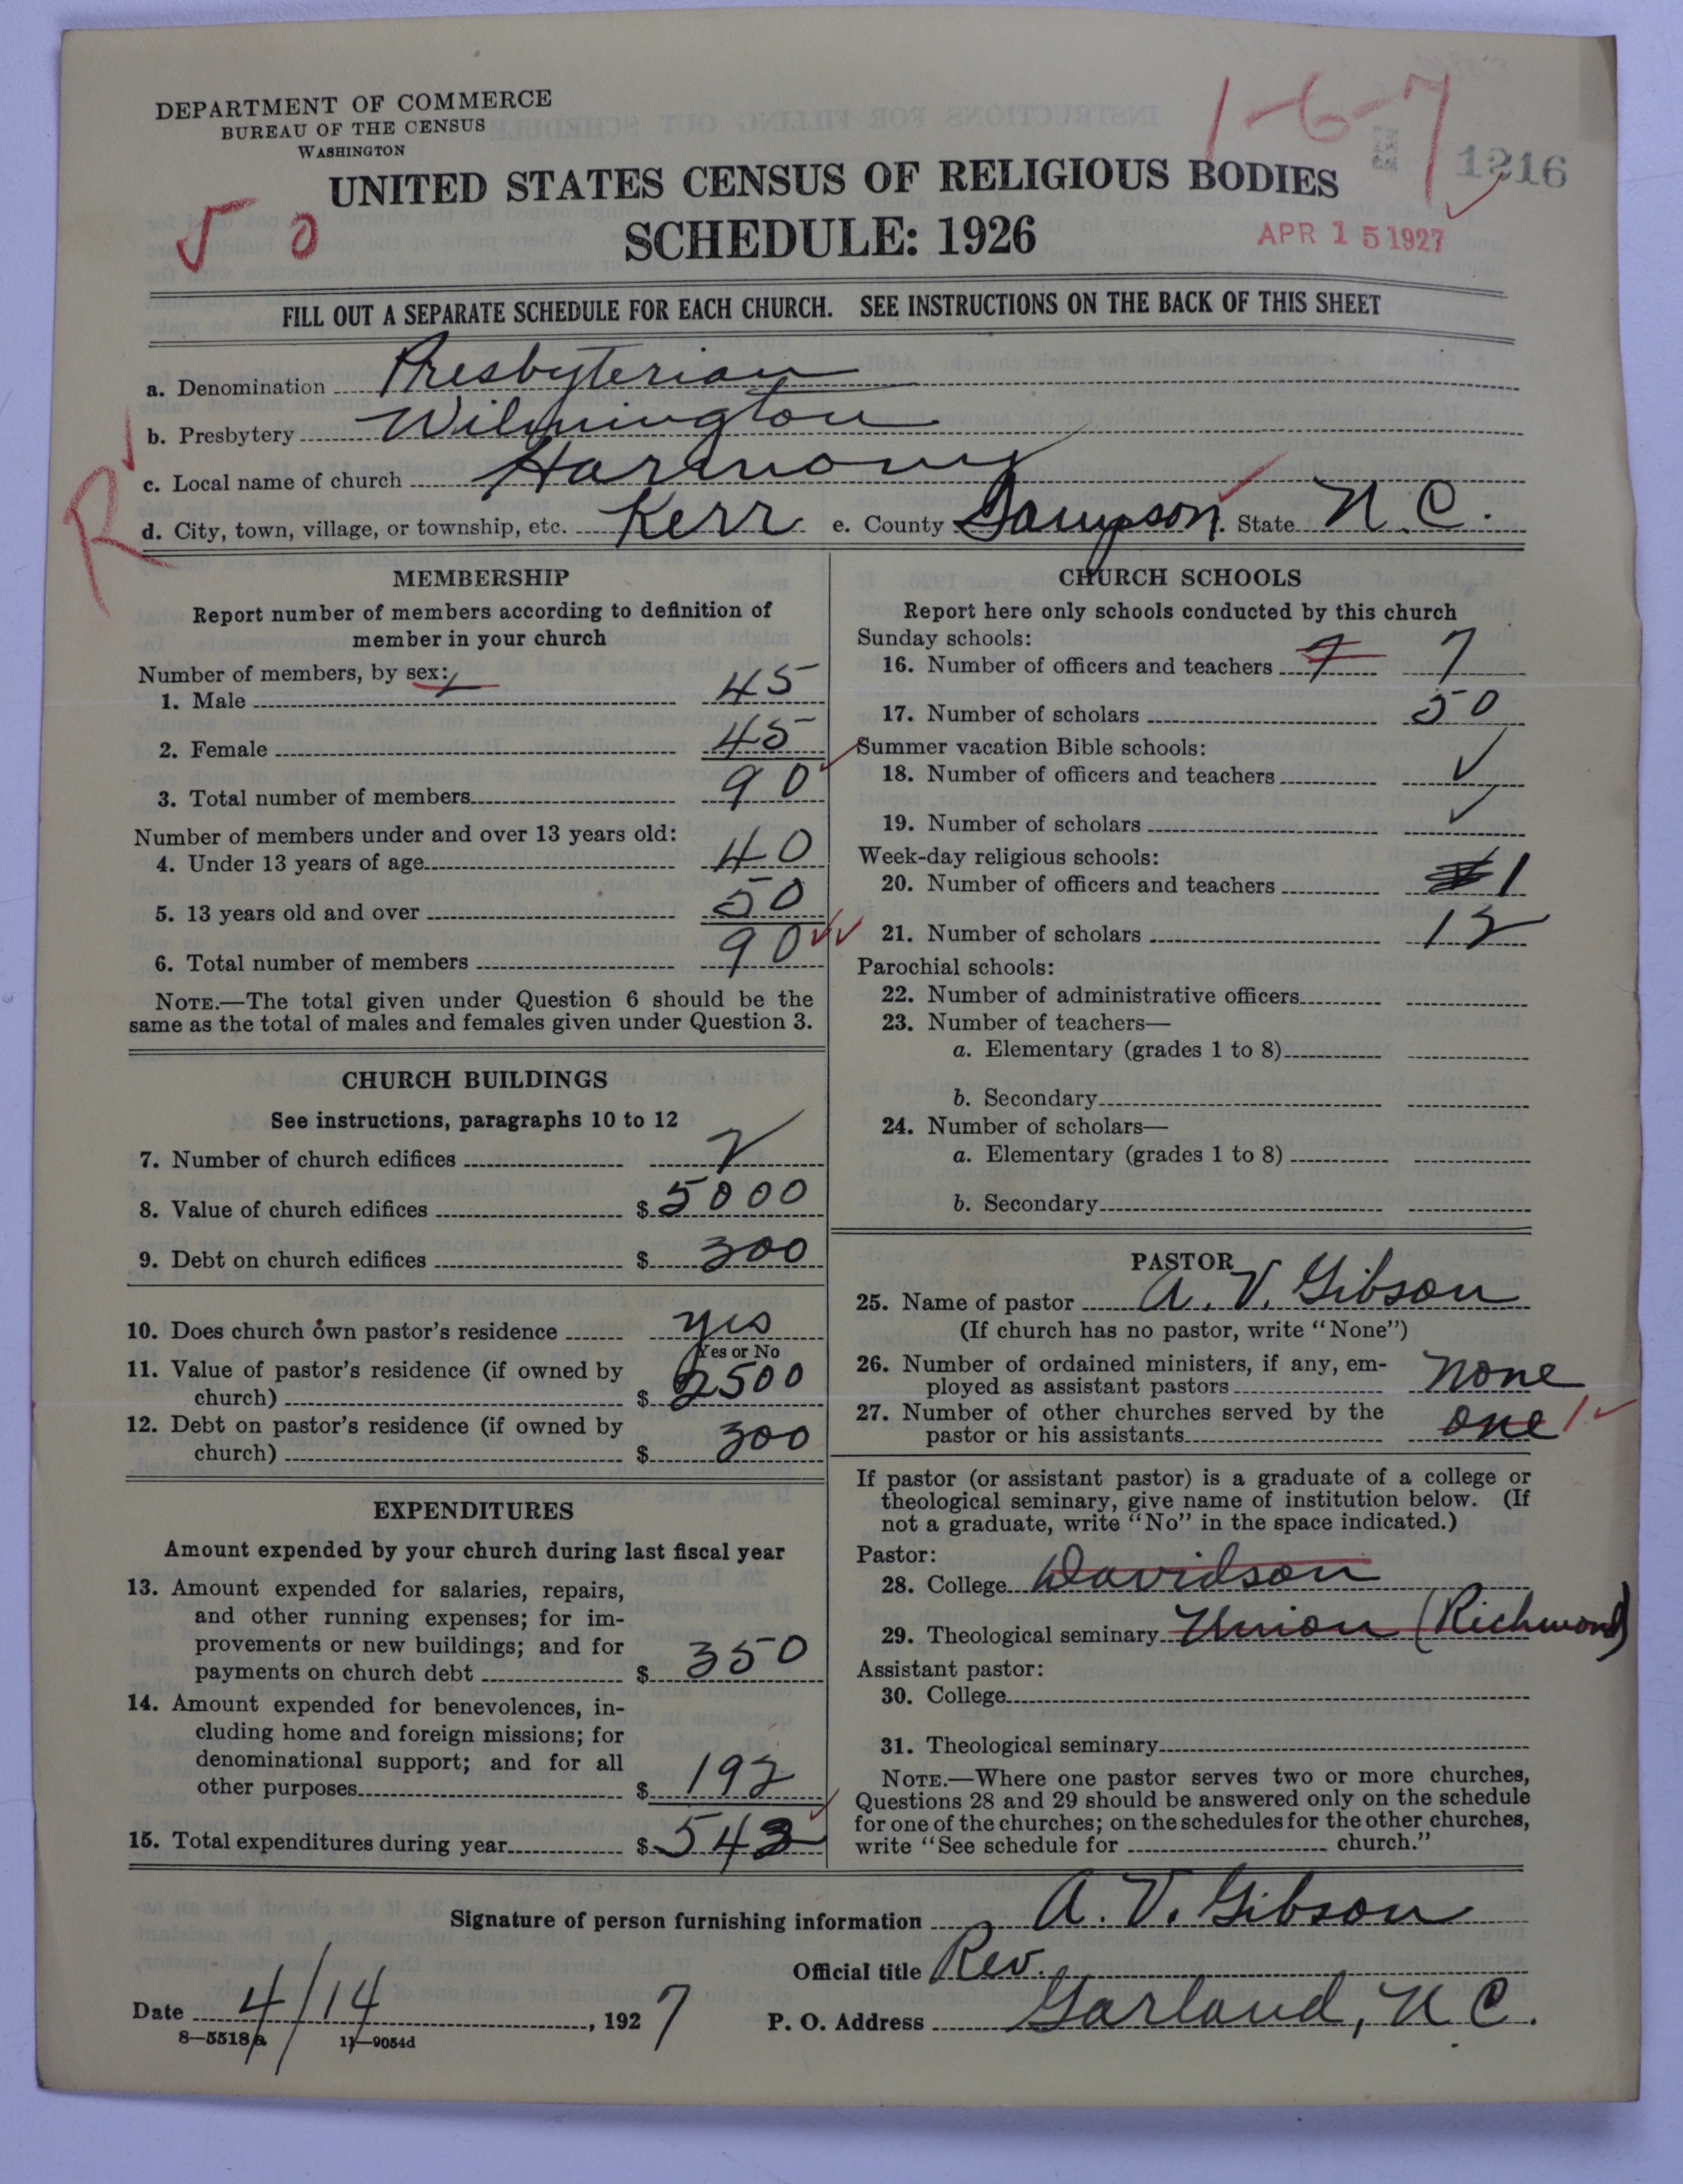 DEPARTMENT OF COMMERCE
BUREAU OF THE CENSUS
WASHINGTON
1-6-7
1216
UNITED STATES CENSUS OF RELIGIOUS BODIES
SCHEDULE: 1926
APR 15 1927
FILL OUT A SEPARATE SCHEDULE FOR EACH CHURCH. SEE INSTRUCTIONS ON THE BACK OF THIS SHEET
a. Denomination Presbyterian
b. Presbytery Wilmington
R
c. Local name of church Harmony
d. City, town, village, or township, etc. Kerr e. County Sampson. State N. C.
MEMBERSHIP
Report number of members according to definition of
member in your church
Number of members, by sex:
1. Male 45
2. Female 45
3. Total number of members 90
Number of members under and over 13 years old:
4. Under 13 years of age 40
5. 13 years old and over 50
6. Total number of members 90
NOTE.—The total given under Question 6 should be the
same as the total of males and females given under Question 3.
CHURCH BUILDINGS
See instructions, paragraphs 10 to 12
7. Number of church edifices
8. Value of church edifices $ 5000
9. Debt on church edifices $ 300
10. Does church own pastor's residence yes
Yes or No
11. Value of pastor's residence (if owned by
church) $ 2500
12. Debt on pastor's residence (if owned by
church) $ 300
EXPENDITURES
Amount expended by your church during last fiscal year
13. Amount expended for salaries, repairs,
and other running expenses; for im-
provements or new buildings; and for
payments on church debt $ 350
14. Amount expended for benevolences, in-
cluding home and foreign missions; for
denominational support; and for all
other purposes $ 192
15. Total expenditures during year $ 542
CHURCH SCHOOLS
Report here only schools conducted by this church
Sunday schools:
16. Number of officers and teachers 7 7
17. Number of scholars 50
Summer vacation Bible schools:
18. Number of officers and teachers ✓
19. Number of scholars ✓
Week-day religious schools:
20. Number of officers and teachers 1
21. Number of scholars 12
Parochial schools:
22. Number of administrative officers
23. Number of teachers—
a. Elementary (grades 1 to 8)
b. Secondary
24. Number of scholars—
a. Elementary (grades 1 to 8)
b. Secondary
PASTOR
25. Name of pastor A. V. Gibson
(If church has no pastor, write "None")
26. Number of ordained ministers, if any, em-
ployed as assistant pastors none
27. Number of other churches served by the
pastor or his assistants one 1
If pastor (or assistant pastor) is a graduate of a college or
theological seminary, give name of institution below. (If
not a graduate, write "No" in the space indicated.)
Pastor:
28. College Davidson
29. Theological seminary Union (Richmond)
Assistant pastor:
30. College
31. Theological seminary
NOTE.—Where one pastor serves two or more churches,
Questions 28 and 29 should be answered only on the schedule
for one of the churches; on the schedules for the other churches,
write "See schedule for church."
Signature of person furnishing information A. V. Gibson
Official title Rev.
Date 4/14, 1927 P. O. Address Garland, N. C.
8—5518a 11—9054d